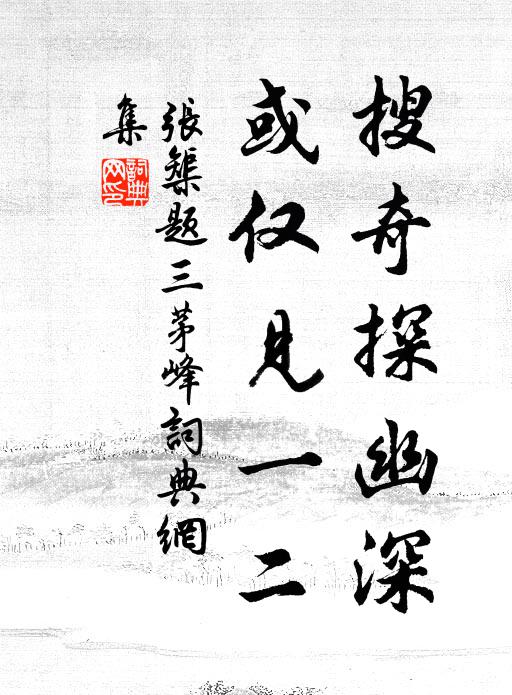 搜奇探幽深
或仅見一二
張榘题三茅峰詞典網
集
詞典
网印